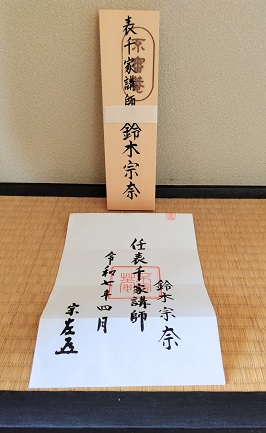 不審菴
表千家講師
鈴木宗奈
鈴木宗奈
任表千家講師
令和七年四月
宗左